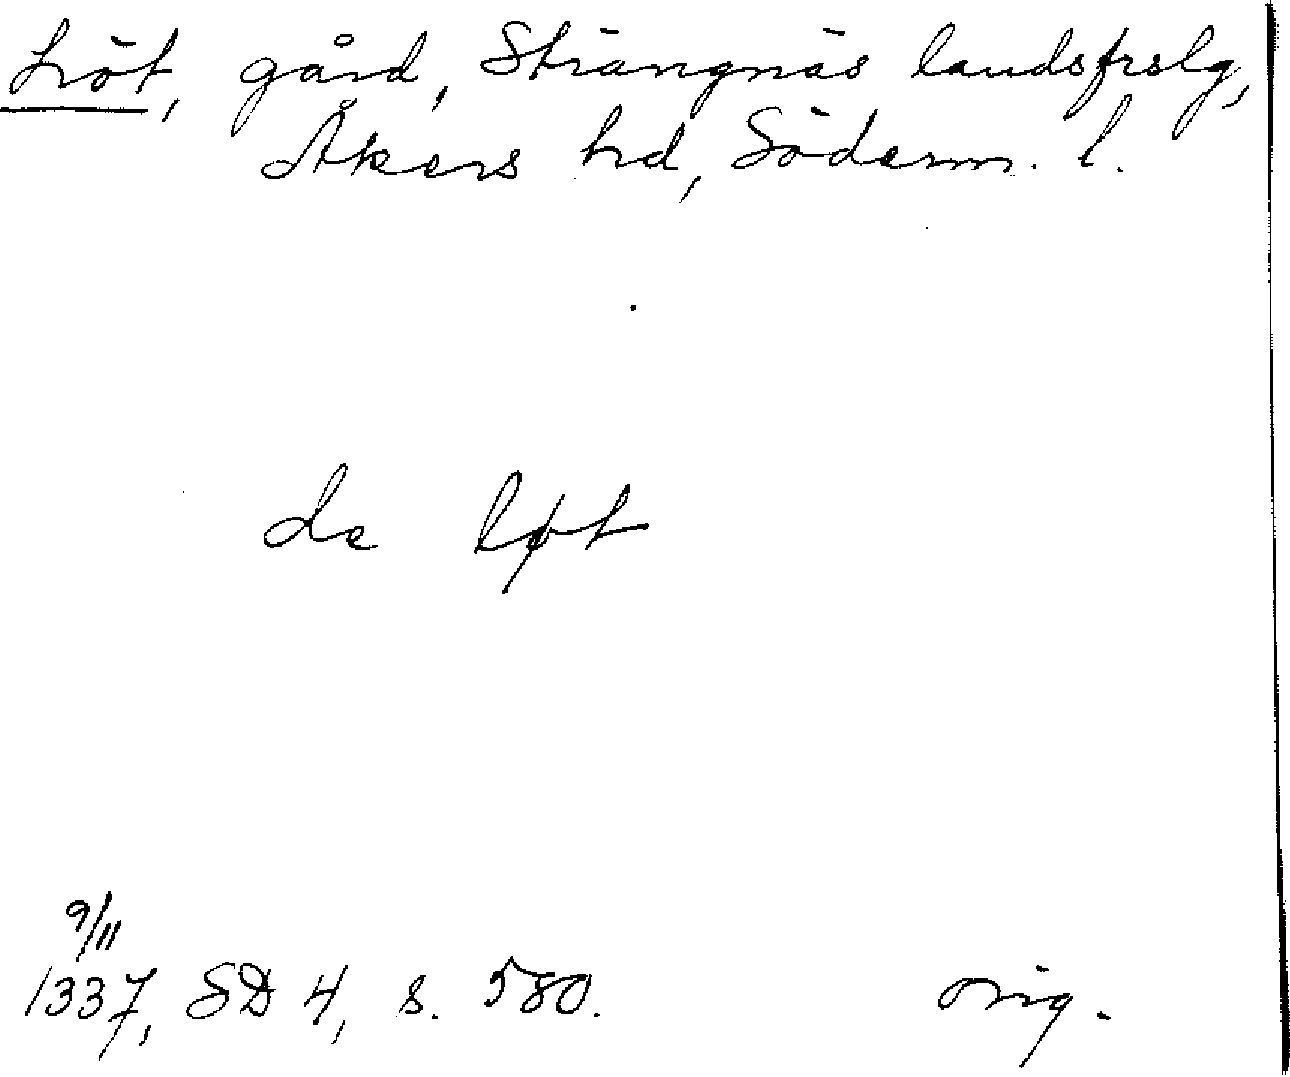 Löt, gård, Strängnäs landsfrslg,
Åkers hd, Söderm. l.
de løt
9/11
1337, SD 4, s. 580. orig.